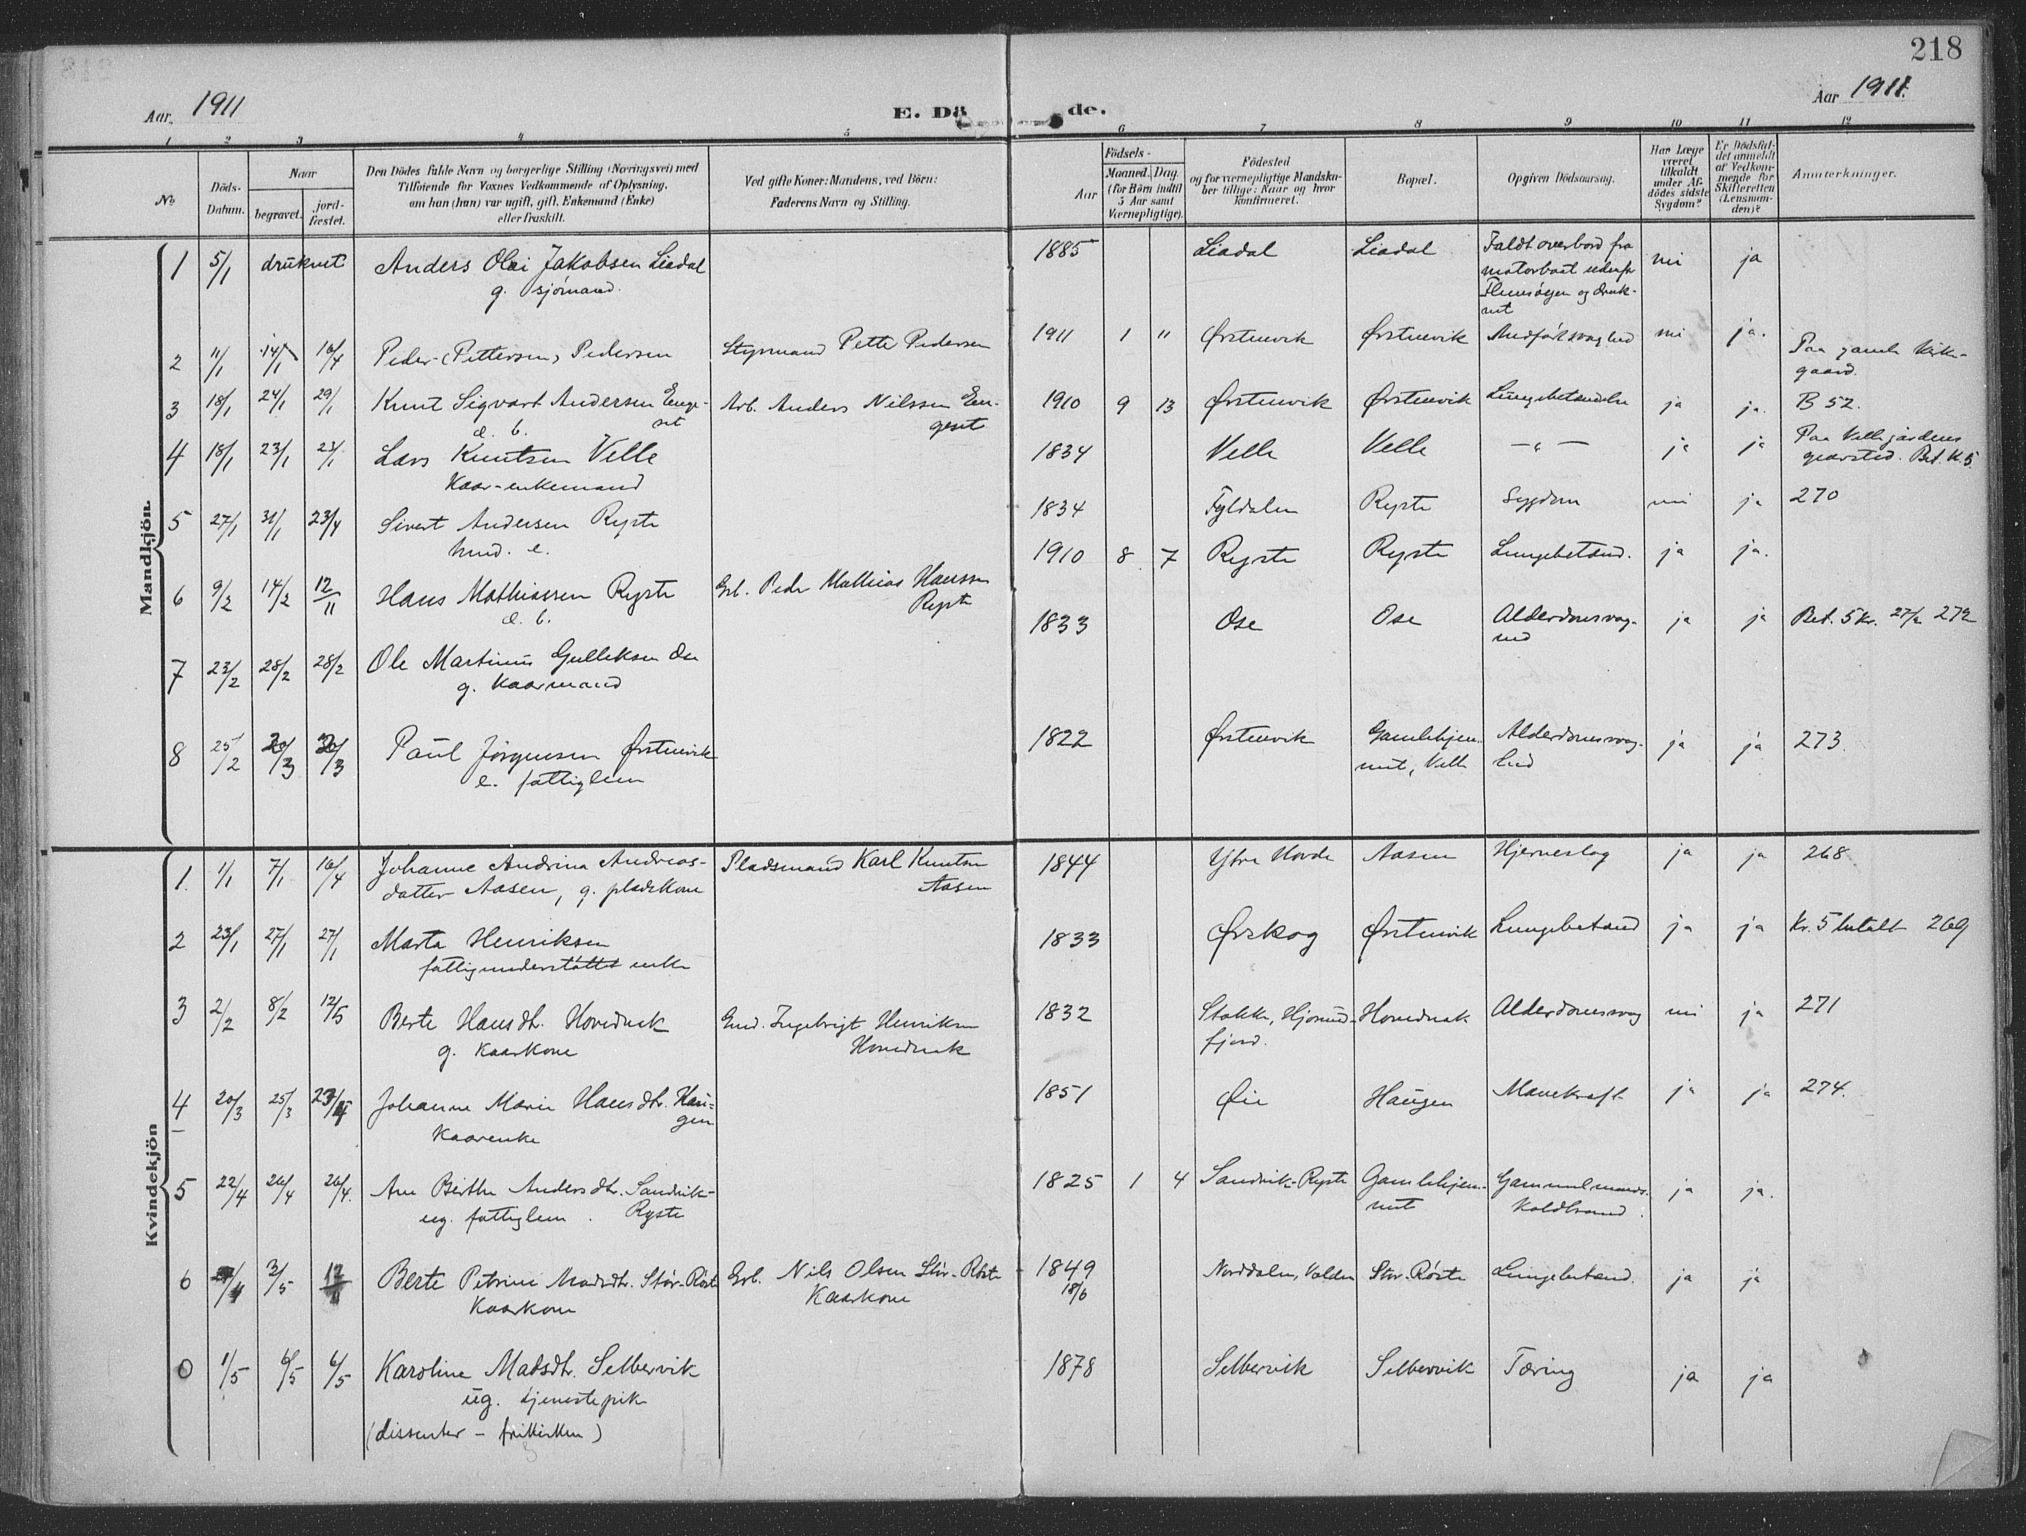 218
Aar 1911
E. Dö de.
Aar 1911.
1 2 3 4 5 6 7 8 9 10 11 12
No
Döds-Datum.
Naar
begravet.
jord-fæstet.
Den Dödes fulde Navn og borgerlige Stilling (Næringsvei) med
Tilföiende for Voxnes Vedkommende af Oplysning,
om han (hun) var ugift, gift, Enkemand (Enke)
eller fraskilt.
Ved gifte Koner: Mandens, ved Börn:
Faderens Navn og Stilling.
Födsels-
Aar
Maaned. Dag.
(for Börn indtil
5 Aar samt
Værnepligtige).
Födested
og for værnepligtige Mandska-
ber tillige: Naar og hvor
konfirmeret.
Bopæl.
Opgiven Dödsaarsag.
Har Læge
været
tilkaldt
under Af-
dödes sidste
Sygdom?
Er Dödsfal-
det anmeldt
af Vedkom-
mende for
Skifteretten
(Lensman-
den)?
Anmerkninger.
Mandkjön.
1 5/1 druknet Anders Olai Jakobsen Liadal 1885 Liadal Liadal Faldt overbord fra nei ja
g. sjömand. motorbaat udenfor
og druk-
net
2 11/1 14/1 16/4 Peder (Pettersen) Pedersen Styrmand Pette Pedersen 1911 1 " Ørstenvik Ørstenvik Medfødt svaghed nei ja. Paa gamle Kirke-
gaard.
3 18/1 24/1 29/1 Knut Sigvart Andersen Enge- Arb. Anders Nilssen En- 1910 9 13 Ørstenvik Ørstenvik Lungebetændelse ja ja. B 52.
d. b. set geset
4 18/1 23/1 23/1 Lars Knutsen Velle 1834 Velle Velle — " — ja ja Paa Vellegårdens
Kaar-enkemand gravsted. Bet. K 5
5 27/1 31/1 23/4 Sivert Andersen Ryste 1834 Fyldalen Ryste Sygdom nei ja 270
hmd. e.
6 9/2 14/2 12/11 Hans Mathiassen Ryste Grb. Peder Mathias Hanssen 1910 8 7 Ryste Ryste Lungebetænd. ja ja.
d. b. Ryste
7 23/2 28/2 28/2 Ole Martinus Gulleksen Ose 1833 Ose Ose Alderdomssvag- ja ja Bet. 5 kr. 27/2 272
g. Kaarmand hed
8 25/2 20/3 30/3 Paul Jørgensen Ørstenvik 1822 Ørstenvik Gamlehjem- Alderdomssvag- ja ja 273.
e. fattiglem met, Velle hed
Kvindekjön
1. 1/1 7/1 16/4 Johanne Andrina Andreas- Pladsmand Karl Knutsen 1844 Ytre Hovde Aasen Hjerneslag ja ja 268.
datter Aasen, g. pladskone Aasen
2 23/1 27/1 27/1 Marta Henriksen 1833 Ørskog Ørstenvik Lungebetænd ja ja Kr. 5 betalt 269
fattigunderstøttet enke
3 2/2 8/2 12/5 Berte Hansdtr. Hovdenak Gmd. Ingebrigt Henriksen 1832 Stokke, Hjørund- Hovdenak Alderdomssvag nei ja 271
g. Kaarkone Hovdenak fjord.
4 20/3 25/3 23/4 Johanne Marie Hansdtr. Hau- 1851 Øie Haugen Mavekræft ja ja 274.
Kaarenke gen
5 22/4 26/4 26/4. Ane Berthe Andersdtr. Sandvik- 1825 1 4 Sandvik-Ryste Gamlehjem- Gammelmands- ja ja.
ug. fattiglem. Ryste met koldbrand.
6 3/5 Berte Petrine Madsdtr. Stor-Röste Grb. Nils Olsen Stor-Röste 1849 Norddalen, Volden Stor-Röste Lungebetænd. ja ja
Kaarkone Kaarkone 18/6
1/5 6/5 6/5 Karoline Madsdtr. Selbervik 1878 Selbervik Selbervik Tæring ja ja
ug. tjenestepik
(dissenter – frikirken)